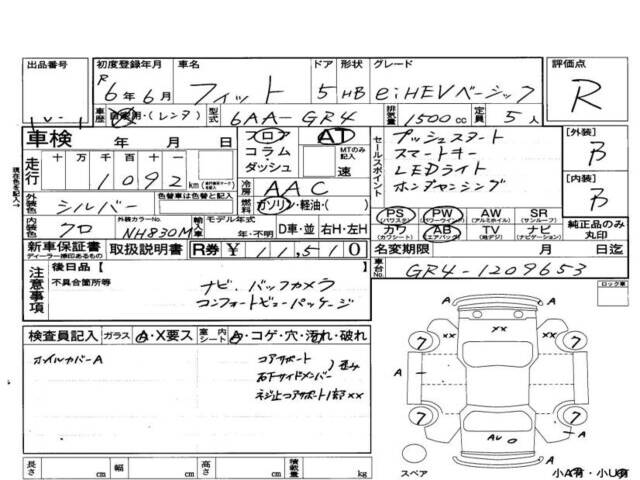 出品番号
初度登録年月
車名
ドア
形状
グレード
評価点
R
6年6月
フィット
5
HB
e:HEVベーシック
R
車歴
自家用・(レンタ)
型式
6AA-GR4
排気量
1500cc
定員
5人
車検
年 月 日
フロア
コラム・
ダッシュ
AT
MTのみ記入
速
セールスポイント
プッシュスタート
スマートキー
LEDライト
ホンダセンシング
[外装]
B
[内装]
B
走行
十 万 千 百 十 一
1092
km
現在色を記入→
冷房
AAC
外装色
シルバー
色替車は色替と記入
燃料
ガソリン・軽油・( )
内装色
クロ
外装カラーNo.
NH830M
輸入車
モデル年式
年・不明
D車・並
右H・左H
PS
(パワステ)
PW
(パワーウインド)
AW
(アルミホイル)
SR
(サンルーフ)
カワ
(カワシート)
AB
(エアバック)
TV
(地デジ)
ナビ
(ナビゲーション)
純正品のみ
丸印
新車保証書
ディーラー捺印あるもの
取扱説明書
R券
¥11,510
名変期限
月 日迄
車台No.
GR4-1209653
注意事項
後日品〔 〕
不具合箇所等
ナビ、バックカメラ
コンフォートビューパッケージ
ロック車
検査員記入
ガラス
A・X要ス
室内
シート
A・コゲ・穴・汚れ・破れ
ホイルカバーA
コアサポート
右下サイドメンバー
歪み
ネジ止コアサポート1部××
××
××
7
7
7
7
A
A
A
A
AU
スペア
小A有・小U有
長さ
cm
幅
cm
高さ
cm
積載量
kg